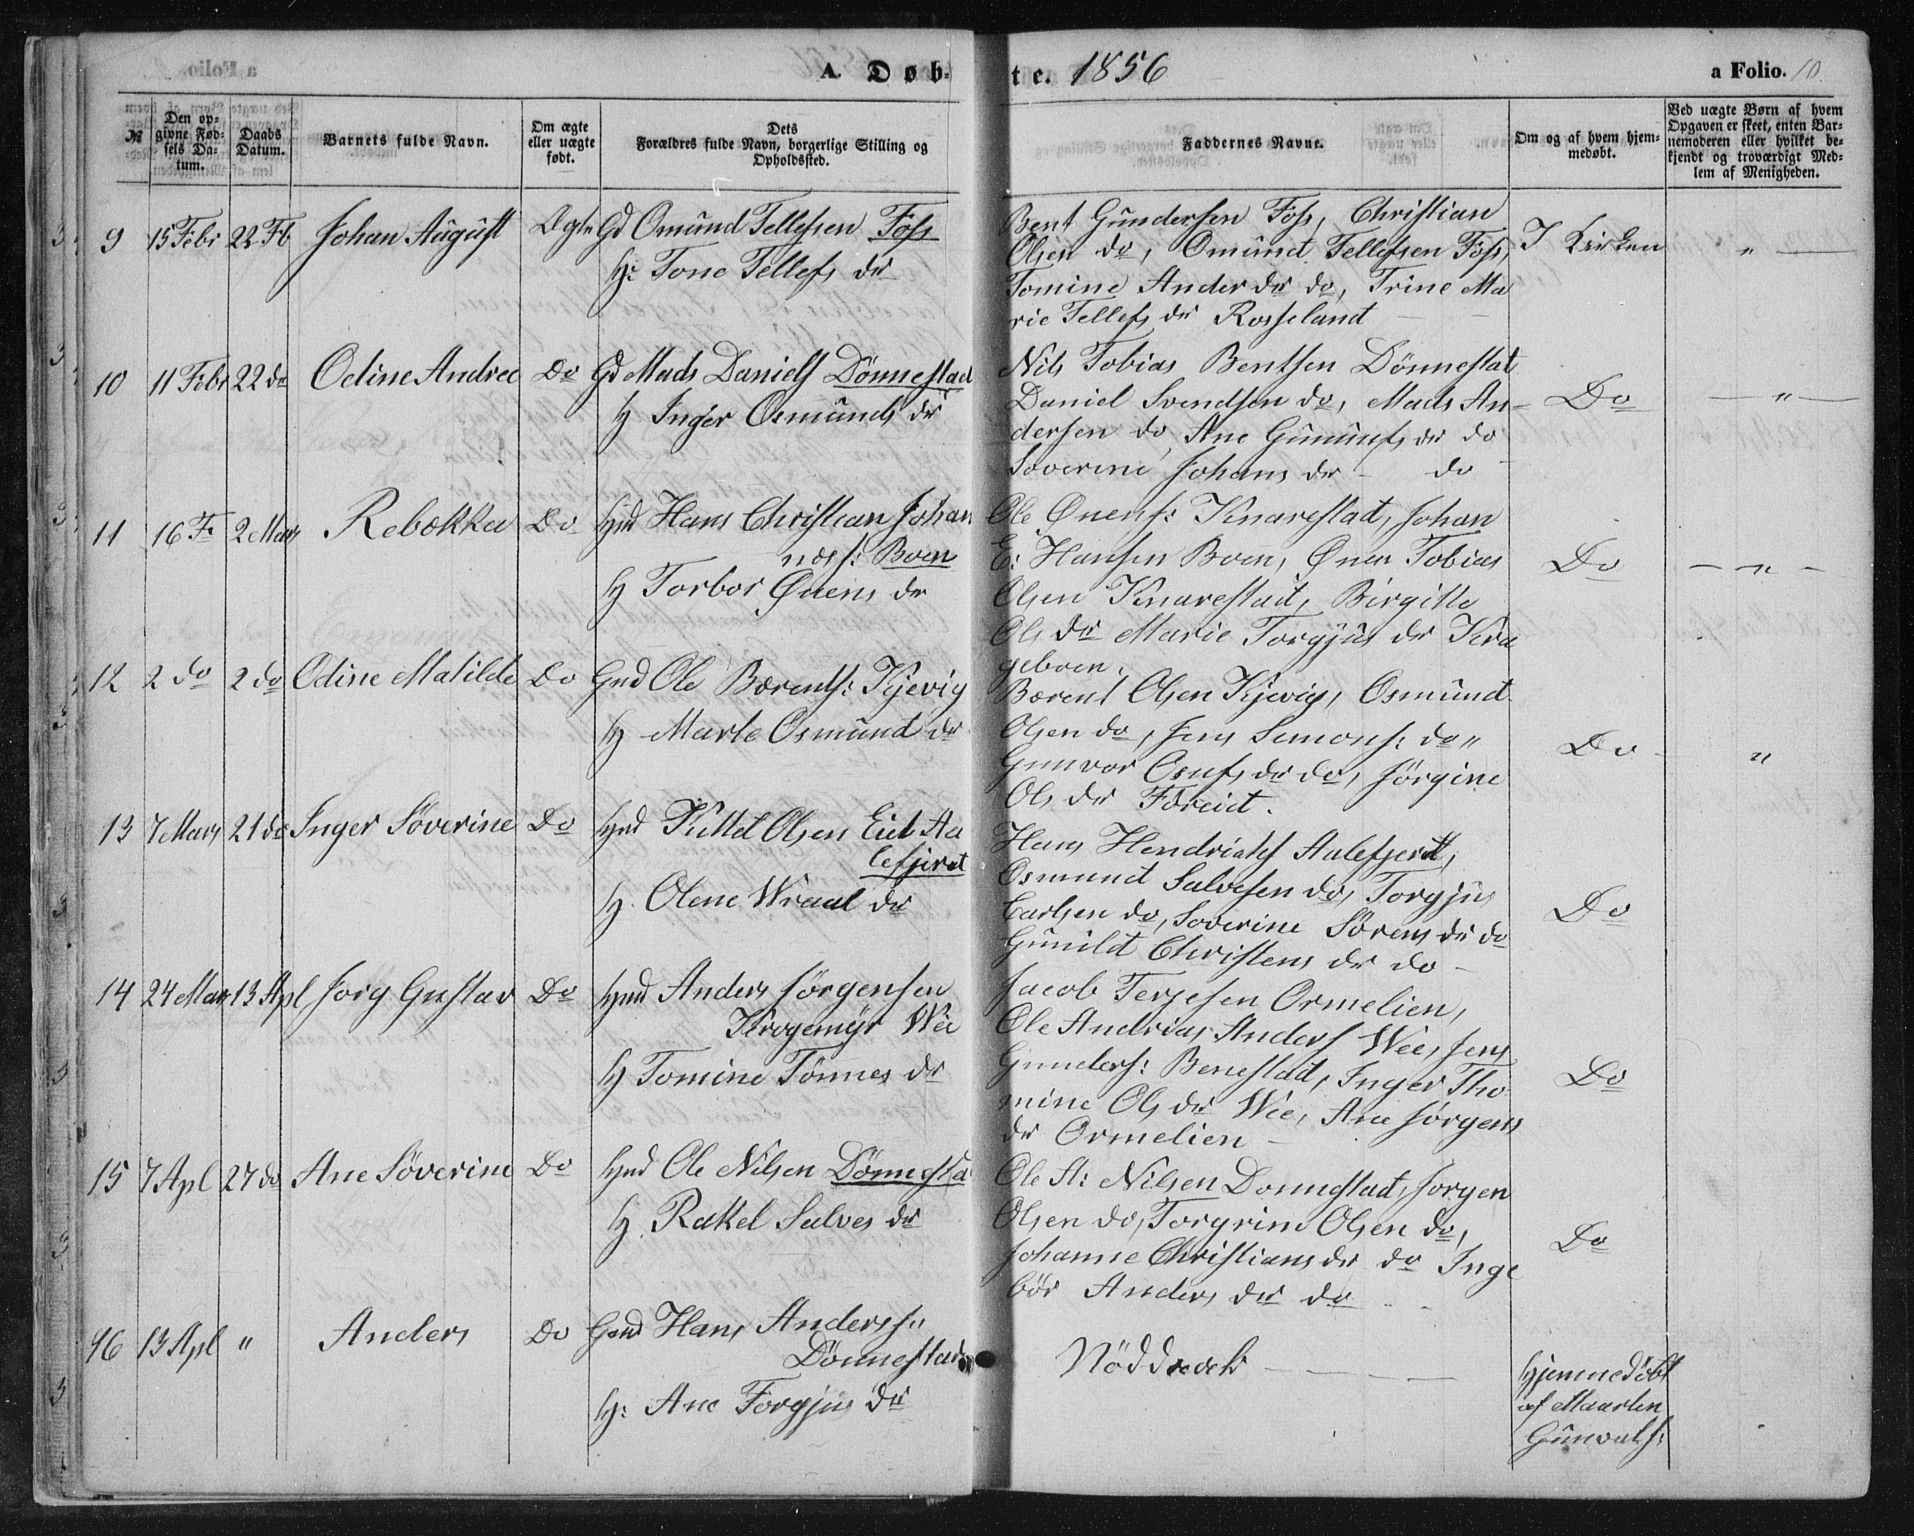 A. Døbte. 1856 a Folio. 10.
№
Den opgivne Fødsels Datum.
Daabs Datum.
Barnets fulde Navn.
Om ægte eller uægte født.
Dets Forældres fulde Navn, borgerlige Stilling og Opholdssted.
Faddernes Navne.
Om og af hvem hjemmedøbt.
Ved uægte Børn af hvem Opgaven er skeet, enten Barnemoderen eller hvilket bekjendt og troværdigt Medlem af Menigheden.
9 15 Febr 22 Fb Johan August Ægte Gd Omund Tellefsen Foss
H: Tone Tellefs dr
Bent Gundersen Foss, Christian
Olsen do, Omund Tellefsen Foss,
Tomine Anders dr do, Trine Ma
rie Tellefs dr Rosseland
I Kirken "
10 11 Febr 22 do Odine Andrea Do Gd Mads Daniels Dönnestad
H Inger Osmunds dr
Nils Tobias Bentsen Dönnestat
Daniel Svendsen do, Mads An-
dersen do, Ane dr do
Soverine Johans dr - do
Do "
11 16 F 2 Mars Rebækka Do Hmd Hans Christian Johan
næss: Boen
H Torbor Ønens dr
Ole Ønens: Knarestad, Johan
E: Hansen Boen, Ønen Tobias
Olsen Knarestad, Birgitte
Ols dr Marie Torgjus dr Kra
geboen.
Do "
12 2 do 2 do Odine Matilde Do Gmd Ole Bærents: Kjevig
H Marte Osmund dr
Bærent Olsen Kjevig, Osmund
Olsen do, Jens Simons: do"
Gunvor dr do, Jörgine
Ols dr Foreid.
Do "
13 7 Mars 21 do Inger Söverine Do Hmd Kittel Olsen Eiet Aa
lefjerd
H. Olene Wraal dr
Hans Hendriks Aalefjerd,
Osmund Salvesen do, Torgjus
Carlsen do, Soverine Sörens dr do
Gunild Christens dr do -
Do
14 24 Mars 13 Apl Jorg Gustav Do Hmd Anders Jörgensen
Krogemyr Wee
H Tomine Tönnes dr
Jacob Terjesen Ormelien,
Ole Andrias Anders Wee, Jens
Gunders: Benestad, Inger Tho
mine Ols dr Wee, Ane Jörgens
dr Ormelien -
Do
15 7 Apl 27 do Ane Söverine Do Hmd Ole Nilsen Dönnesta
H. Rakel Salves dr
Ole A: Nilsen Donnestad, Jorgen
Olsen do, Torgrim Olsen do,
Johanne Christians dr do Inge
bör Anders dr do
Do
16 13 Apl " Anders Do Gmd Hans Anderss:
Dönnestad
H: Ane Torgjus dr
Nöddöbt
Hjemmedöbt
af Maarten
Gunvals: